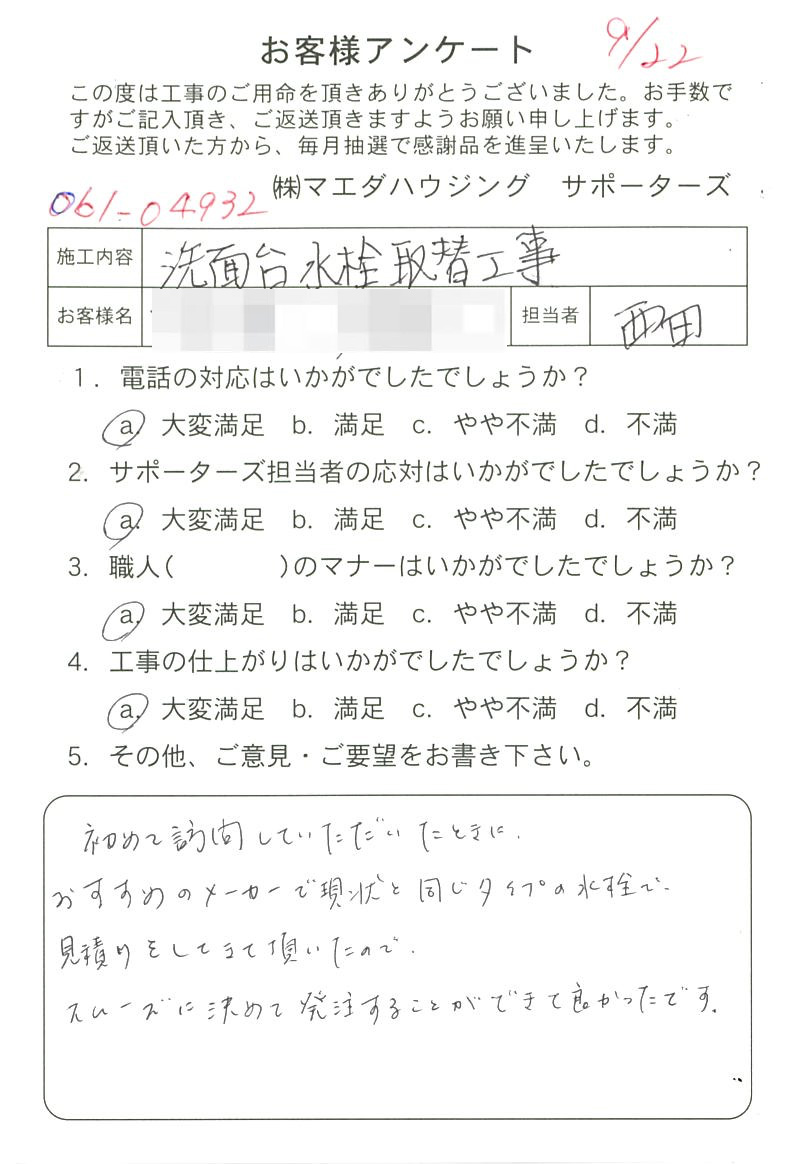 お客様アンケート 9/22
この度は工事のご用命を頂きありがとうございました。お手数で
すがご記入頂き、ご返送頂きますようお願い申し上げます。
ご返送頂いた方から、毎月抽選で感謝品を進呈いたします。
061-04932 ㈱マエダハウジング サポーターズ
施工内容 洗面台水栓取替工事
お客様名 担当者 西田
1. 電話の対応はいかがでしたでしょうか？
a. 大変満足 b. 満足 c. やや不満 d. 不満
2. サポーターズ担当者の応対はいかがでしたでしょうか？
a. 大変満足 b. 満足 c. やや不満 d. 不満
3. 職人( )のマナーはいかがでしたでしょうか？
a. 大変満足 b. 満足 c. やや不満 d. 不満
4. 工事の仕上がりはいかがでしたでしょうか？
a. 大変満足 b. 満足 c. やや不満 d. 不満
5. その他、ご意見・ご要望をお書き下さい。
初めて訪問していただいたときに、
おすすめのメーカーで現状と同じタイプの水栓で、
見積りをしてきて頂いたので、
スムーズに決めて発注することができて良かったです。